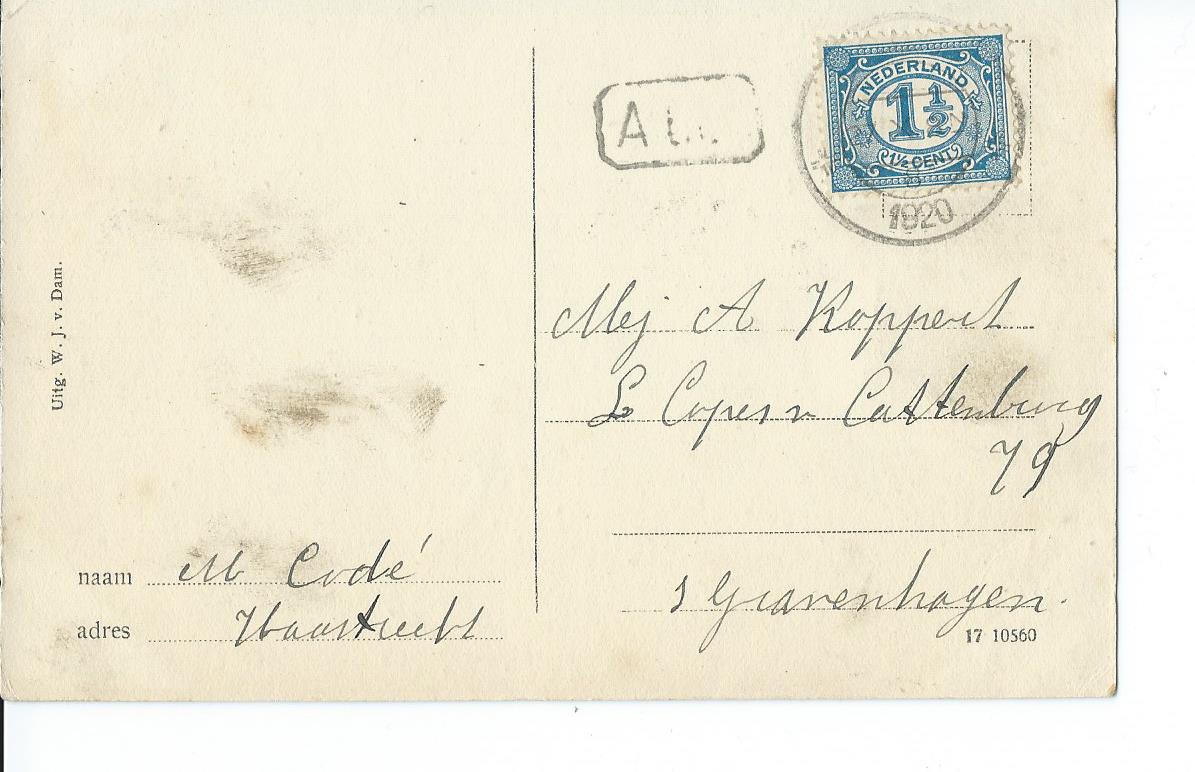 NEDERLAND
1 1/2
1/2 CENT
1920
A
Uitg. W. J. v. Dam.
Mej A Koppert
L Copes v Cattenburg
79
s Gravenhagen.
naam M Codé
adres Haastrecht
17 10560